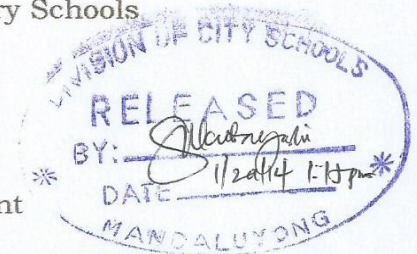 ry Schools
DIVISION OF CITY SCHOOLS
RELEASED
BY:
DATE 1/20/14 1:15 pm
nt
MANDALUYONG